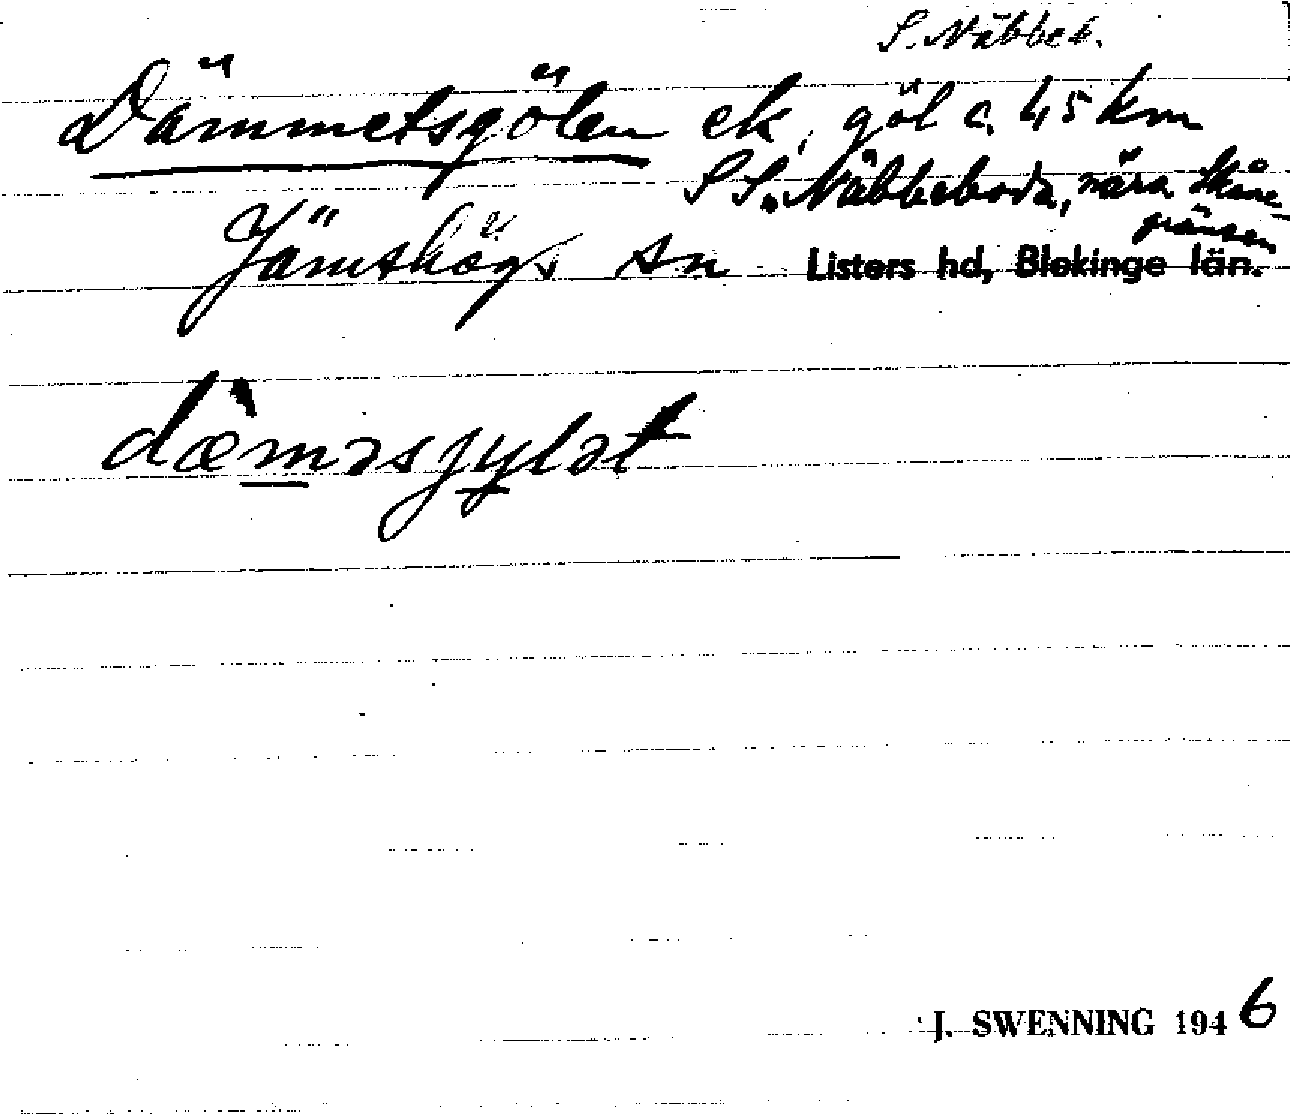 S. Näbbeb.
Dämmetsgölen ek, göl c. 45 km
S S. Näbbeboda, nära Skåne-
gränsen
Jämshögs sn Listers hd, Blekinge län.
dæ̀məsjylət
J. SWENNING 1946